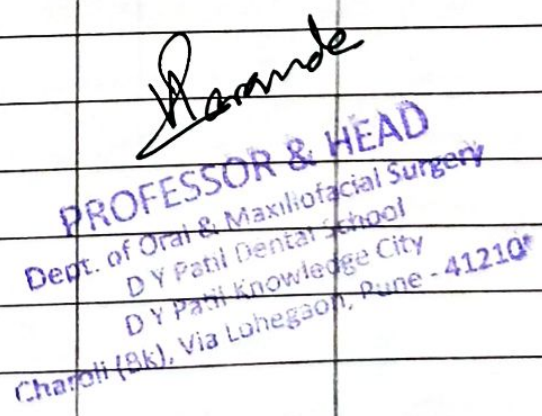 PROFESSOR & HEAD
Dept. of Oral & Maxillofacial Surgery
D Y Patil Dental School
D Y Patil Knowledge City
Charoli (Bk), Via Lohegaon, Pune -